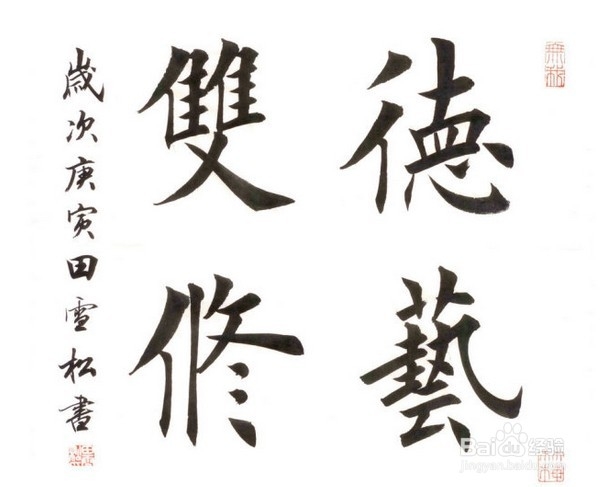 德藝
雙修
歲次庚寅田雪松書
Baidu经验
jingyan.baidu.com